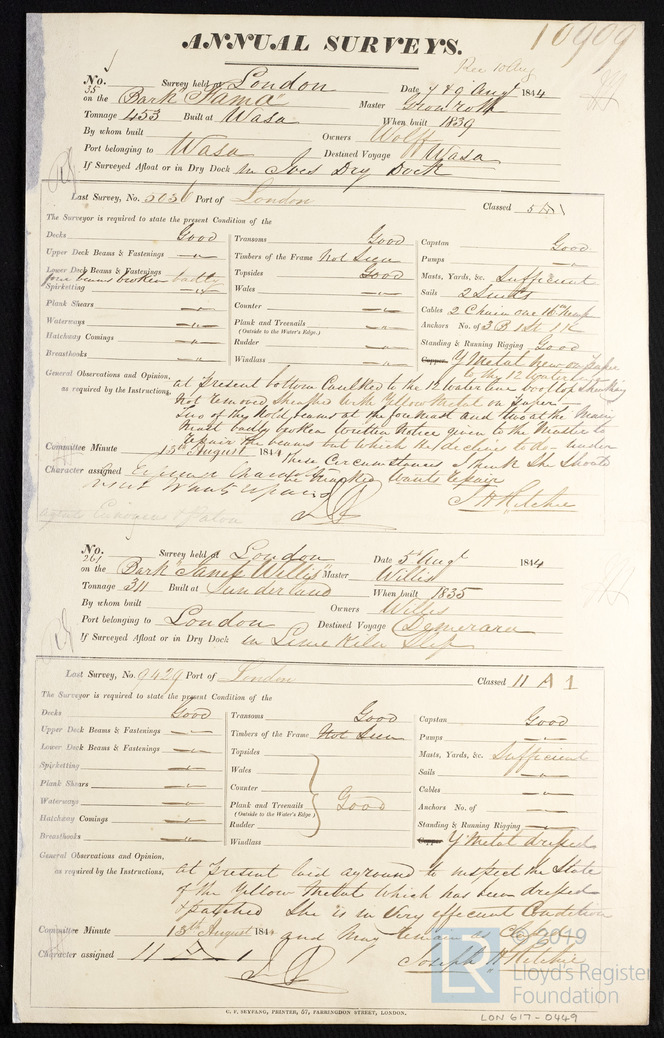 10909
ANNUAL SURVEYS.
Rec 10 Aug
No. 35 Survey held at London Date 7 & 9 Augt 1844
on the Bark "Fama" Master
Tonnage 453 Built at Wasa When built 1839
By whom built Owners Wolff
Port belonging to Wasa Destined Voyage Wasa
If Surveyed Afloat or in Dry Dock in Ives Dry Dock
Last Survey, No. Port of London Classed 5 A 1
The Surveyor is required to state the present Condition of the
Decks Good
Upper Deck Beams & Fastenings "
Lower Deck Beams & Fastenings
four beams broken badly
Spirketting "
Plank Shears "
Waterways "
Hatchway Comings "
Breasthooks "
Transoms Good
Timbers of the Frame Not Seen
Topsides Good
Wales "
Counter "
Plank and Treenails "
(Outside to the Water's Edge.)
Rudder "
Windlass "
Capstan Good
Pumps "
Masts, Yards, &c. Sufficient
Sails 2 Suits
Cables 2 Chain one Hemp
Anchors No. of 3 B 1 St 1 K
Standing & Running Rigging Good
Copper Y Metal new on paper
to the 12 water line
General Observations and Opinion,
as required by the Instructions,
at Present bottom Caulked to the 12 water line
not removed Sheathed with Yellow Metal on paper
Two of the hold beams at the foremast and two at the Main
mast badly broken written Notice given to the Master to
repair the beams but which he declines to do under
these Circumstances I think She Should
be marked wants repair
J H Ritchie
Committee Minute 13th August 1844
Character assigned
wants repair
No. 261 Survey held at London Date 5 Augt 1844
on the Bark "Janet Willis" Master Willis
Tonnage 311 Built at Sunderland When built 1835
By whom built Owners Willis
Port belonging to London Destined Voyage Demerara
If Surveyed Afloat or in Dry Dock in Lime Kiln Slip
Last Survey, No. 9429 Port of London Classed 11 A 1
The Surveyor is required to state the present Condition of the
Decks Good
Upper Deck Beams & Fastenings "
Lower Deck Beams & Fastenings "
Spirketting "
Plank Shears "
Waterways "
Hatchway Comings "
Breasthooks "
Transoms Good
Timbers of the Frame Not Seen
Topsides
Wales
Counter
Plank and Treenails Good
(Outside to the Water's Edge.)
Rudder
Windlass
Capstan Good
Pumps "
Masts, Yards, &c. Sufficient
Sails "
Cables "
Anchors No. of "
Standing & Running Rigging "
Copper Y Metal dressed
General Observations and Opinion,
as required by the Instructions,
at Present laid aground to inspect the State
of the Yellow Metal which has been dressed
& patched She is in Very efficient Condition
and May remain as Classed
Joseph H Ritchie
Committee Minute 13th August 1844
Character assigned 11 A 1
C. F. SEYFANG, PRINTER, 57, FARRINGDON STREET, LONDON.
LR
© 2019
Lloyd's Register
Foundation
LON 617-0449